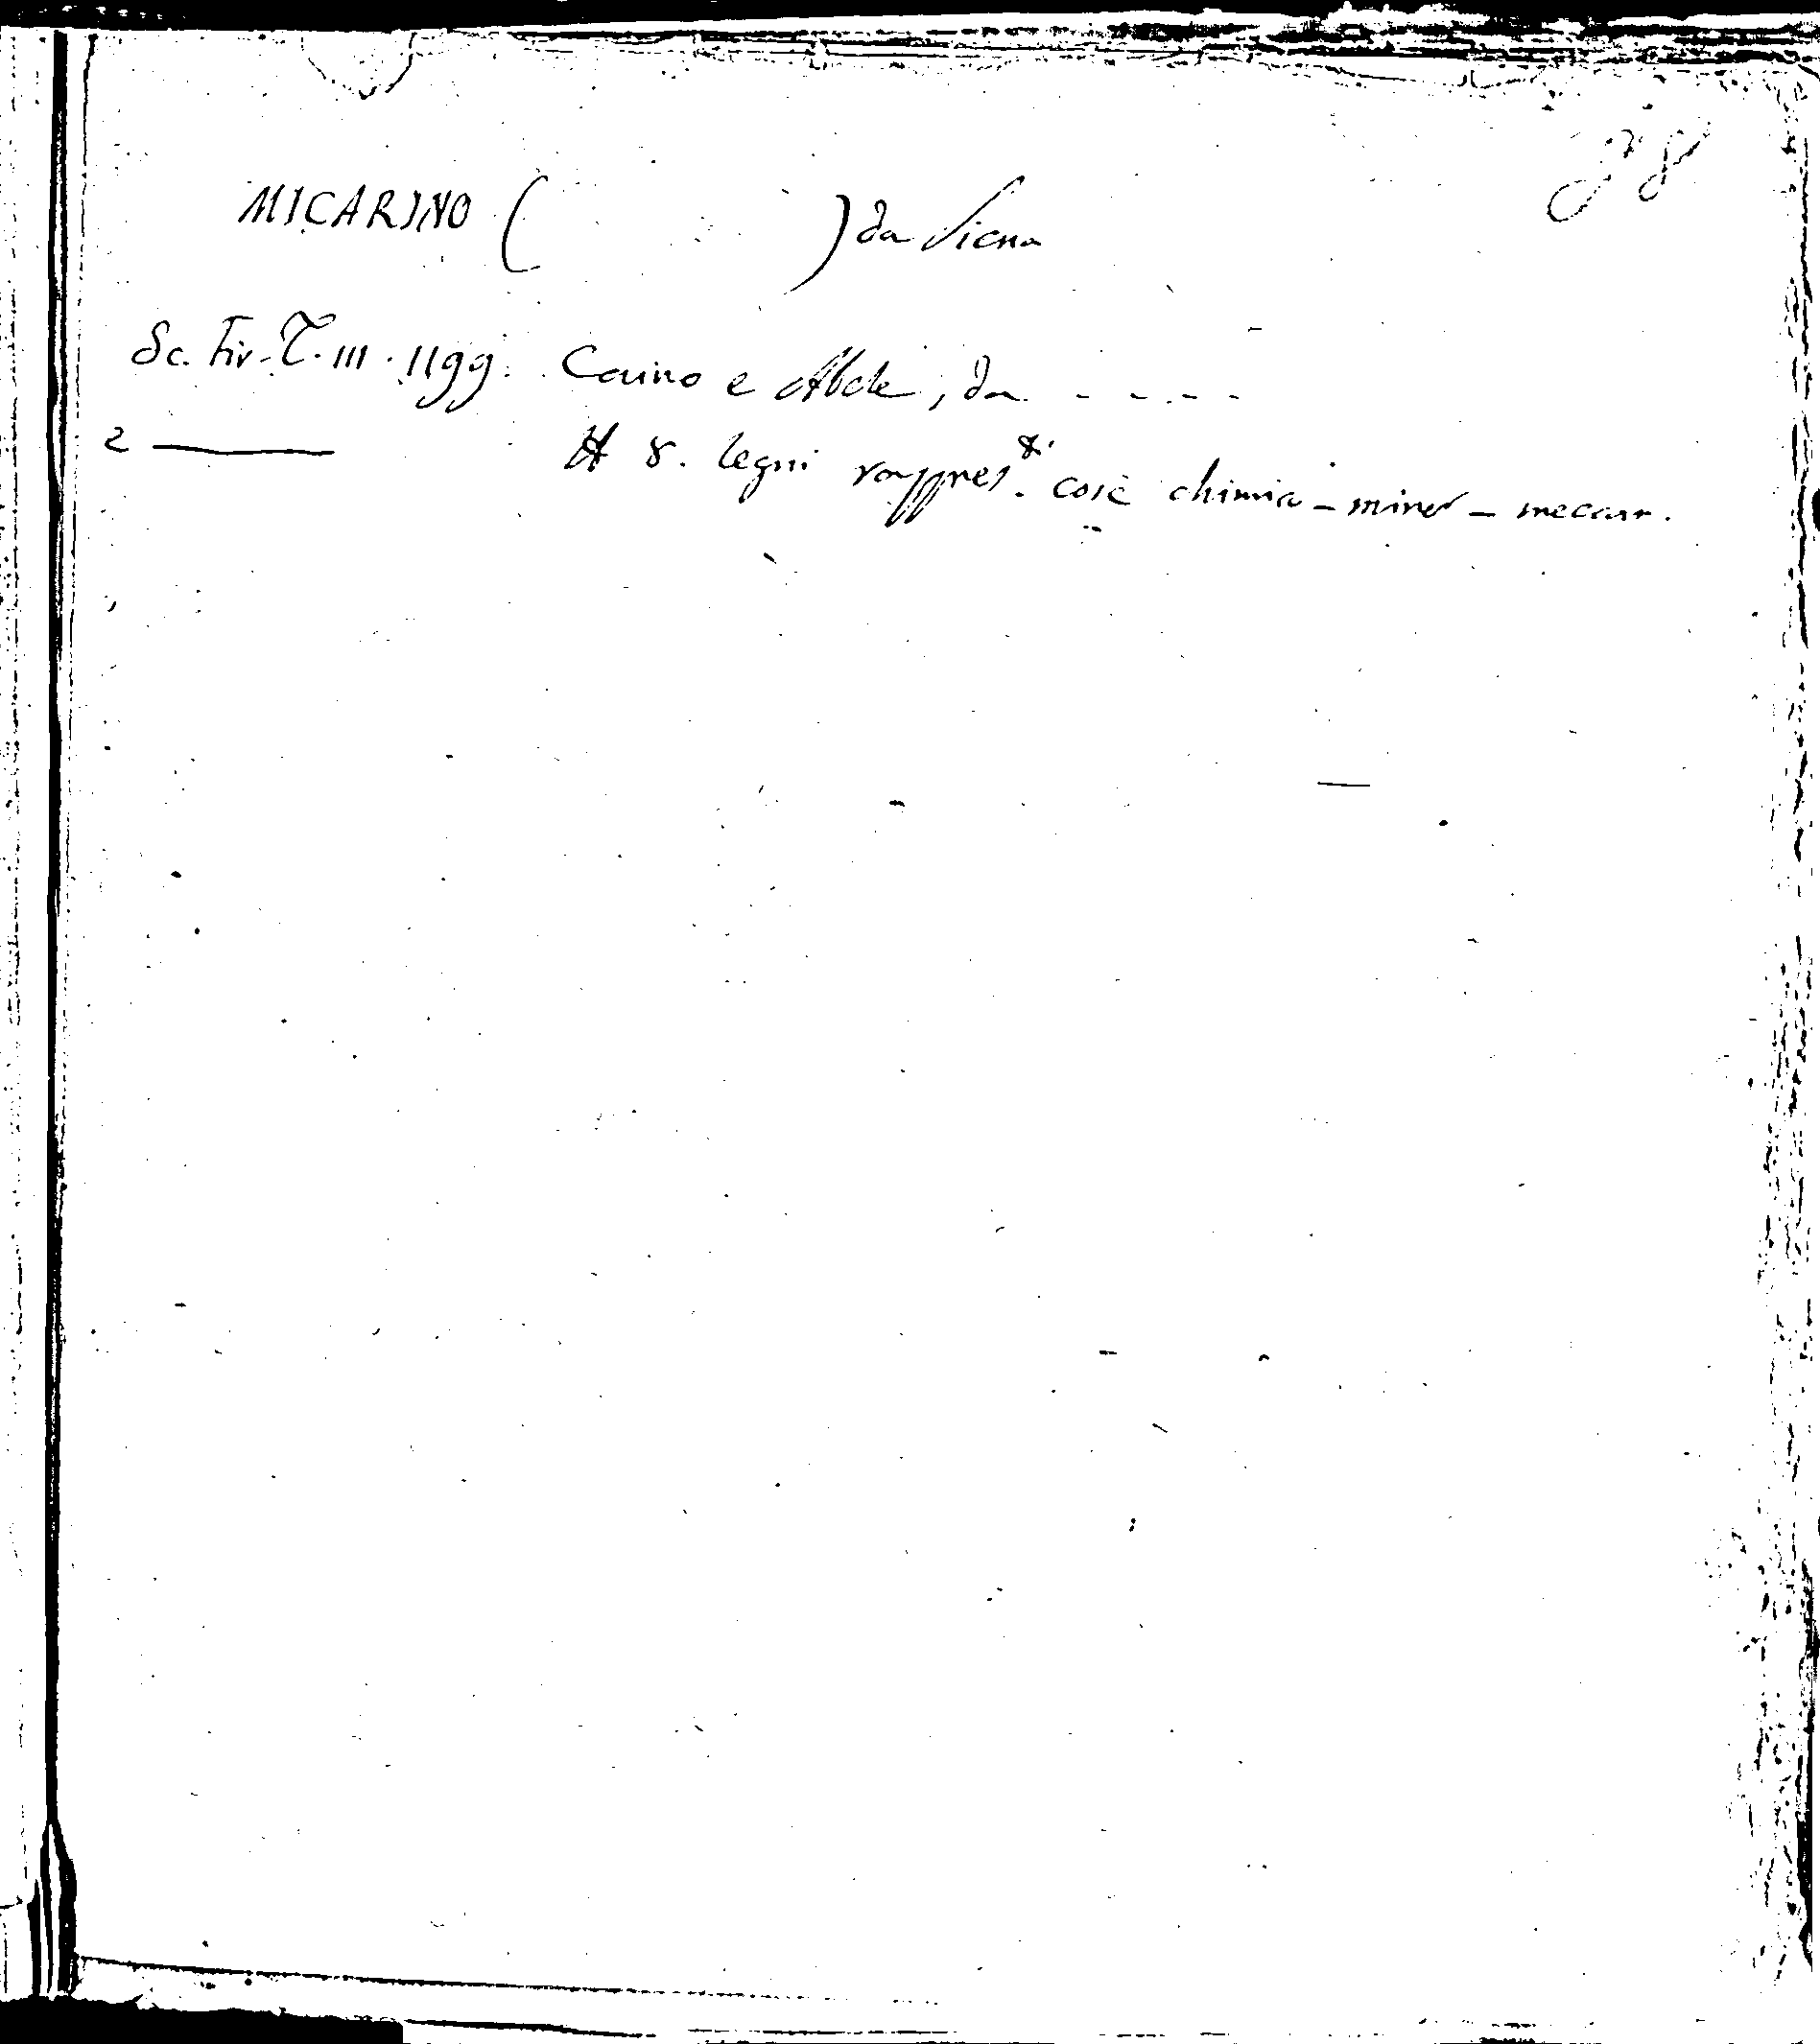 78
MICARINO ( ) da Siena
Sc. Fir. T. III. 1199. Caino e Abele, da - - - - -
2 ——— 8. legni rappres.ti cose chimica - miner - mecan.